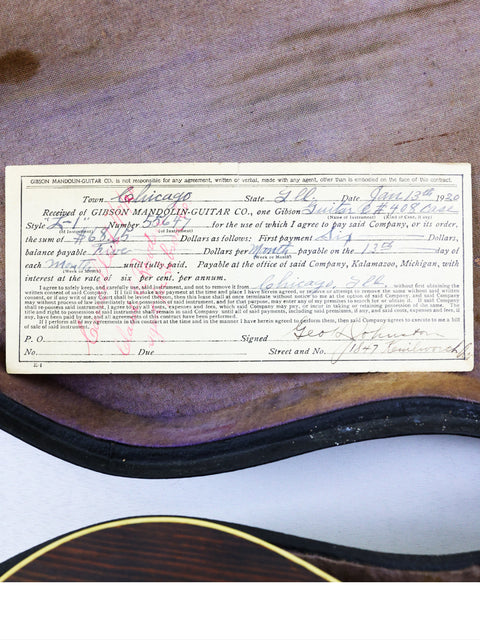 GIBSON MANDOLIN-GUITAR CO. is not responsible for any agreement, written or verbal, made with any agent, other than is embodied on the face of this contract.
Town Chicago State Ill. Date Jan 13th 1920
Received of GIBSON MANDOLIN-GUITAR CO., one Gibson Guitar & #408 Case
(Name of Instrument) (Kind of Case, if any)
Style "L-1" Number 53647 for the use of which I agree to pay said Company, or its order,
(Of Instrument) (Of Instrument)
the sum of Dollars as follows: First payment Six Dollars,
balance payable five Dollars per Month payable on the 12th day of
(Week or Month)
each Month until fully paid. Payable at the office of said Company, Kalamazoo, Michigan, with
(Week or Month)
interest at the rate of six per cent. per annum.
I agree to safely keep, and carefully use, said instrument, and not to remove it from without first obtaining the
written consent of said Company. If I fail to make any payment at the time and place I have agreed, or dispose or attempt to remove the same without said written
consent, or if any writ of any Court shall be levied thereon, then this lease shall at once terminate without notice to me at the option of said Company, and said Company
may without process of law immediately take possession of said instrument, and for that purpose, may enter any of my premises to search for or obtain it. If said Company
shall re-possess said instrument, I agree to pay all costs, expenses and fees, which said Company may pay, or incur in taking or retaining possession of the same. The
title and right to possession of said instrument shall remain in said Company until all of said payments, including said premises, if any, and said costs, expenses and fees, if
any, have been paid by me, and all agreements of this contract have been performed.
If I perform all of my agreements in this contract at the time and in the manner I have herein agreed to perform them, then said Company agree to execute to me a bill
of sale of said instrument.
P. O. Signed Geo Johnston
No. Due Street and No. 1847
E-1